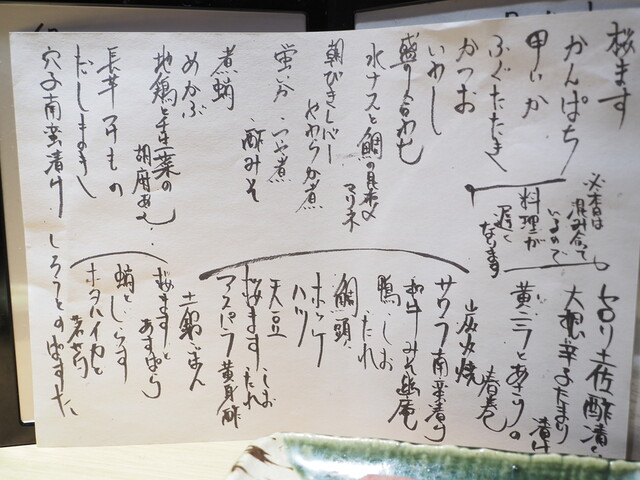 桜ます
かんぱち
甲いか
ふぐたたき
かつお
いわし
盛り合わせ
水ナスと鯛の昆布〆
マリネ
朝びきレバー
やわらか煮
蛍いか つや煮
・酢みそ
煮蛸
めかぶ
地鶏と
胡麻あえ
長芋
だしまきし
穴子南蛮漬け
しろうとのぱすた
必本日は
混み合って
いるので
料理が
遅く
なります
土佐酢漬
大根辛子たまり
漬け
黄ニラとあさり
春巻
炭火焼
サワラ南蛮漬け
和牛みそ幽庵
鴨しお
たれ
鯛頭
ホッケ
ハツ
天豆
桜ます しお
たれ
アスパラ黄身酢
土鍋ごはん
桜ますと
あすぱら
蛸としらす
ホタルイカと